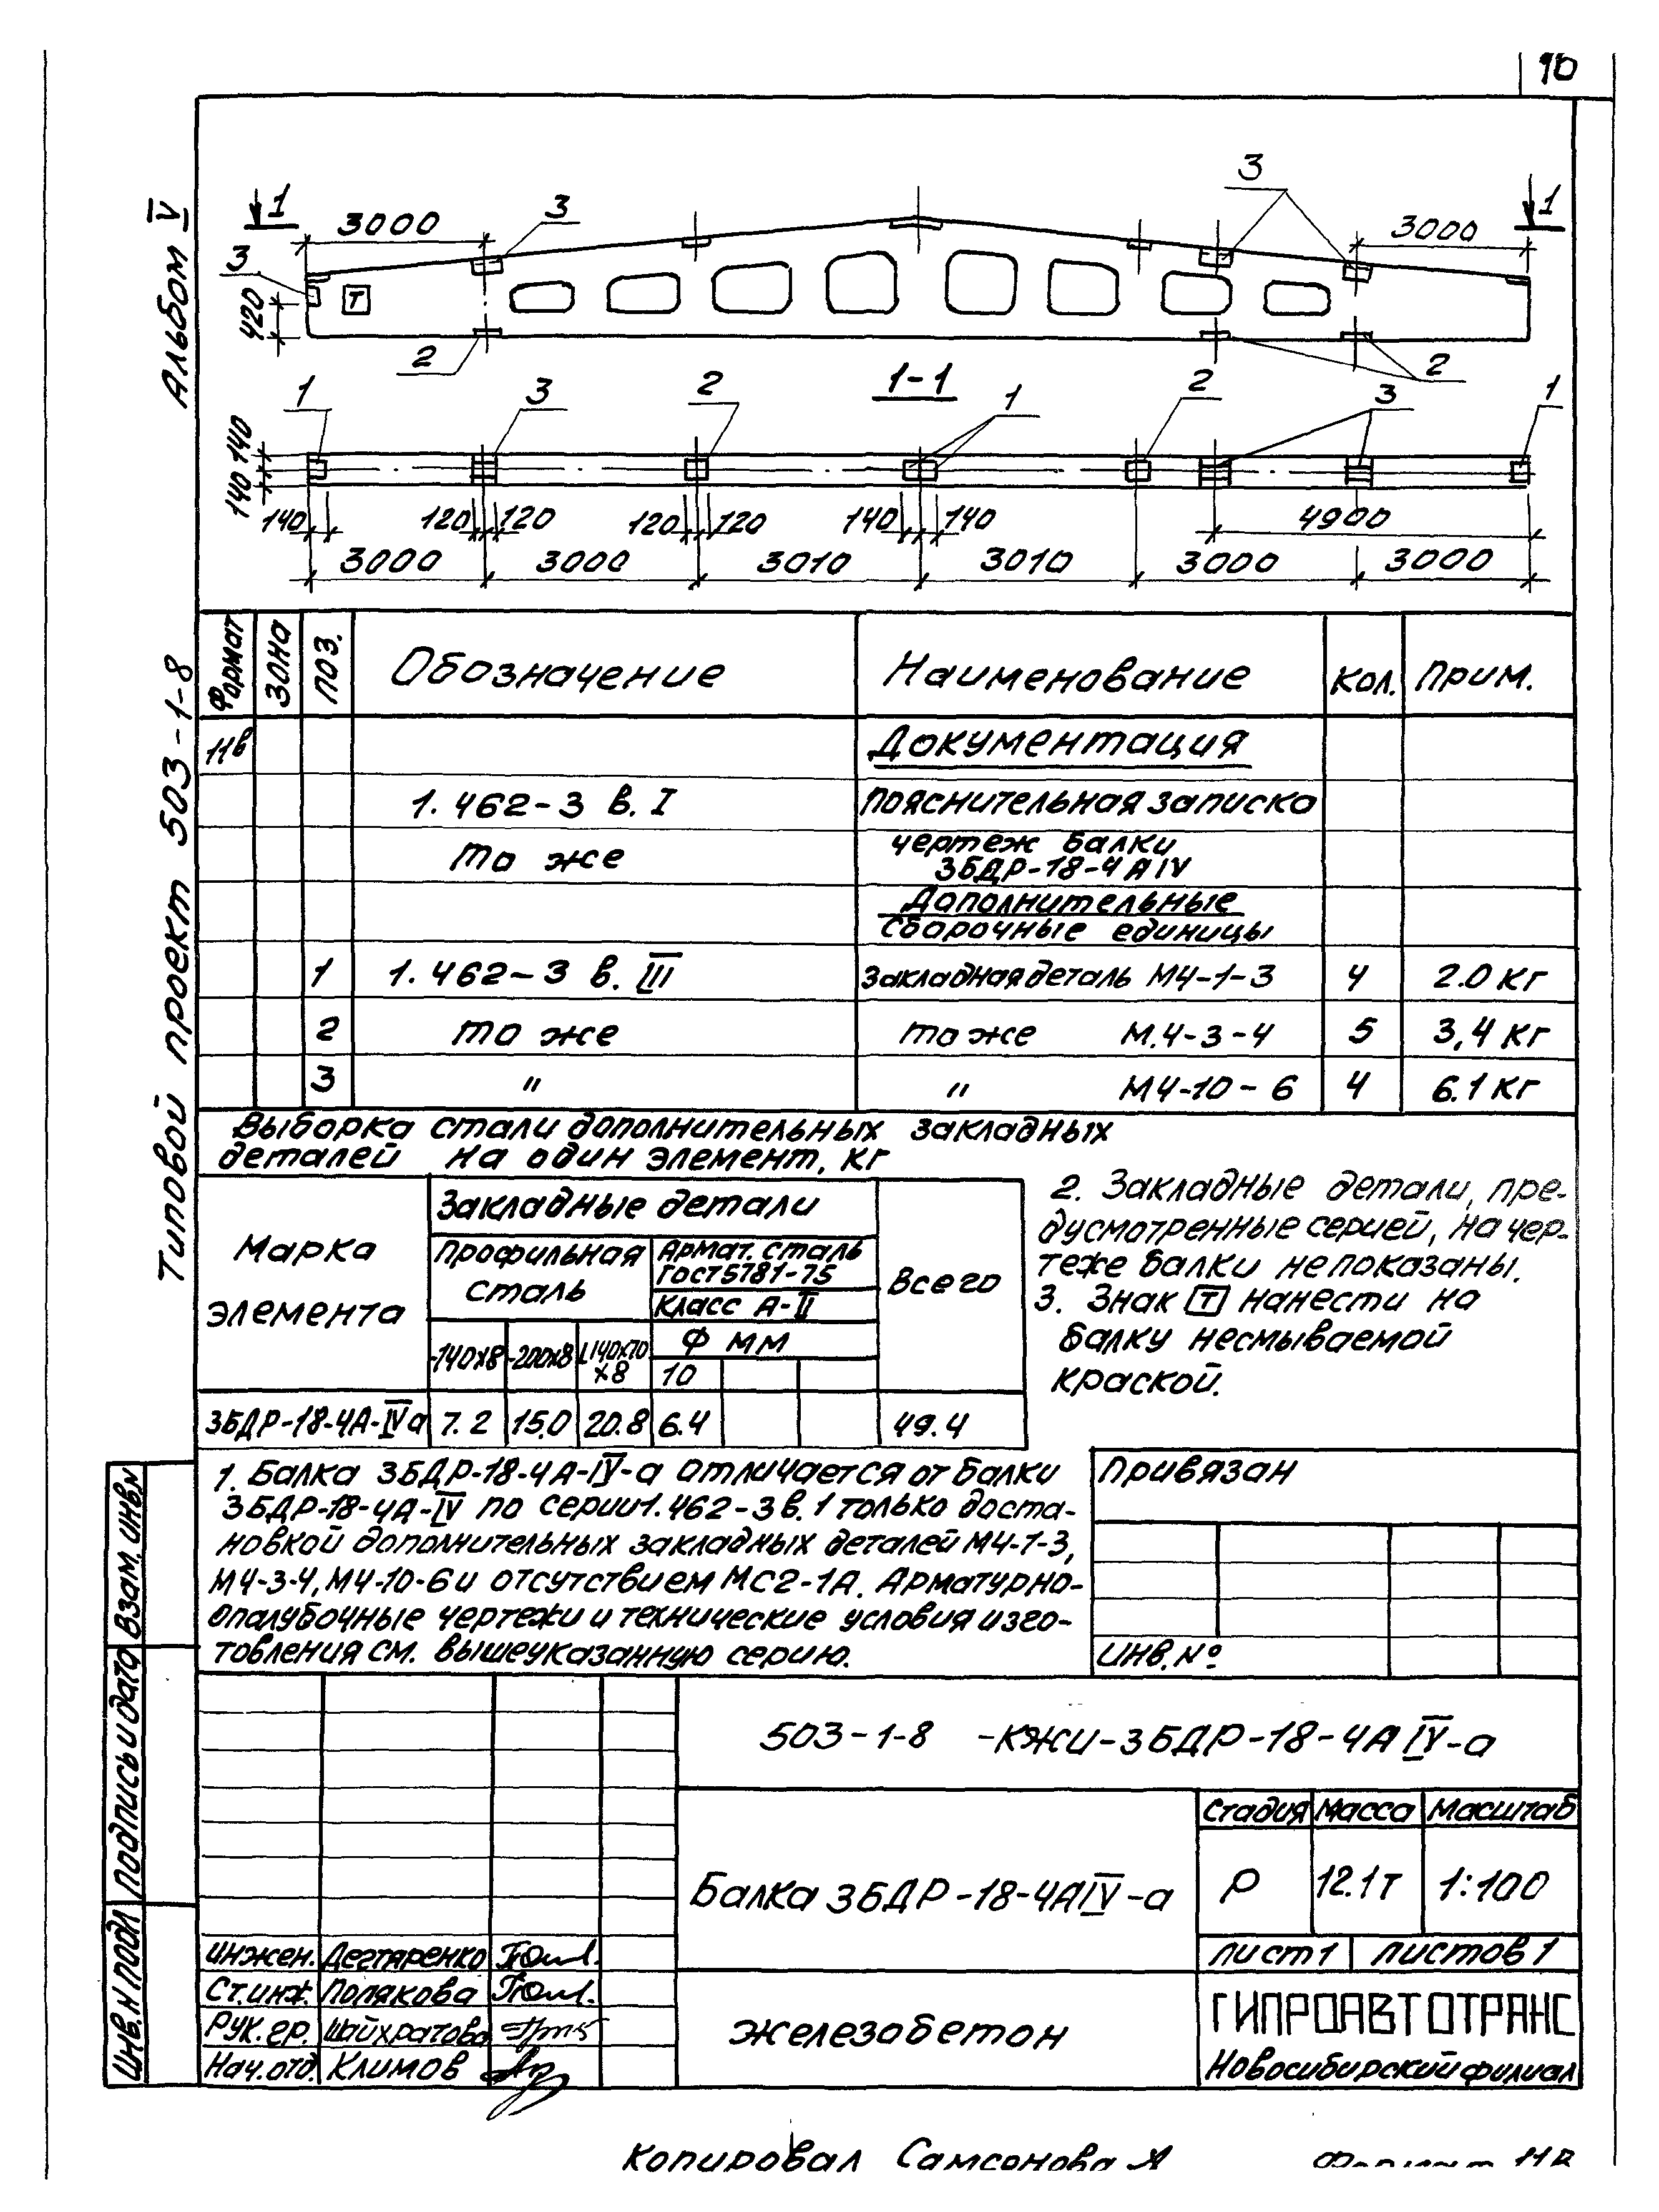 10
Альбом V
Типовой проект 503-1-8
1 3000 3 3 3000 1
3 420 Т 2 2
1-1
1 3 2 1 2 3 1
140 140
140 120 120 120 120 140 140 4900
3000 3000 3010 3010 3000 3000
Формат Зона Поз. Обозначение Наименование Кол. Прим.
11в Документация
1.462-3 в. I Пояснительная записка
То же чертеж балки
3БДР-18-4АIV
Дополнительные
сборочные единицы
1 1.462-3 в. III Закладная деталь М4-1-3 4 2.0 кг
2 то же то же М.4-3-4 5 3,4 кг
3 " " М4-10-6 4 6.1 кг
Выборка стали дополнительных закладных
деталей на один элемент, кг
Марка элемента Закладные детали Всего
Профильная сталь Армат. сталь
ГОСТ 5781-75
Класс А-II
Ф мм
-140х8 -200х8 L140х70х8 10
3БДР-18-4А-IVа 7.2 15.0 20.8 6.4 49.4
2. Закладные детали, пре-
дусмотренные серией, на чер-
теже балки не показаны.
3. Знак Т нанести на
балку несмываемой
краской.
1. Балка 3БДР-18-4А-IV-а отличается от балки
3БДР-18-4А-IV по серии 1.462-3 в.1 только доста-
новкой дополнительных закладных деталей М4-1-3,
М4-3-4, М4-10-6 и отсутствием МС2-1А. Арматурно-
опалубочные чертежи и технические условия изго-
товления см. вышеуказанную серию.
Привязан
Инв. №
Взам. инв.№
Подпись и дата
Инв. № подл
503-1-8 -КЖИ-3БДР-18-4АIV-а
Балка 3БДР-18-4АIV-а
Стадия Масса Масштаб
Р 12.1т 1:100
Лист 1 Листов 1
Инжен. Дегтяренко
Ст.инж. Полякова
Рук.гр. Шайхратова
Нач.отд. Климов
Железобетон
ГИПРОАВТОТРАНС
Новосибирский филиал
Копировал Самсонова Формат 11в